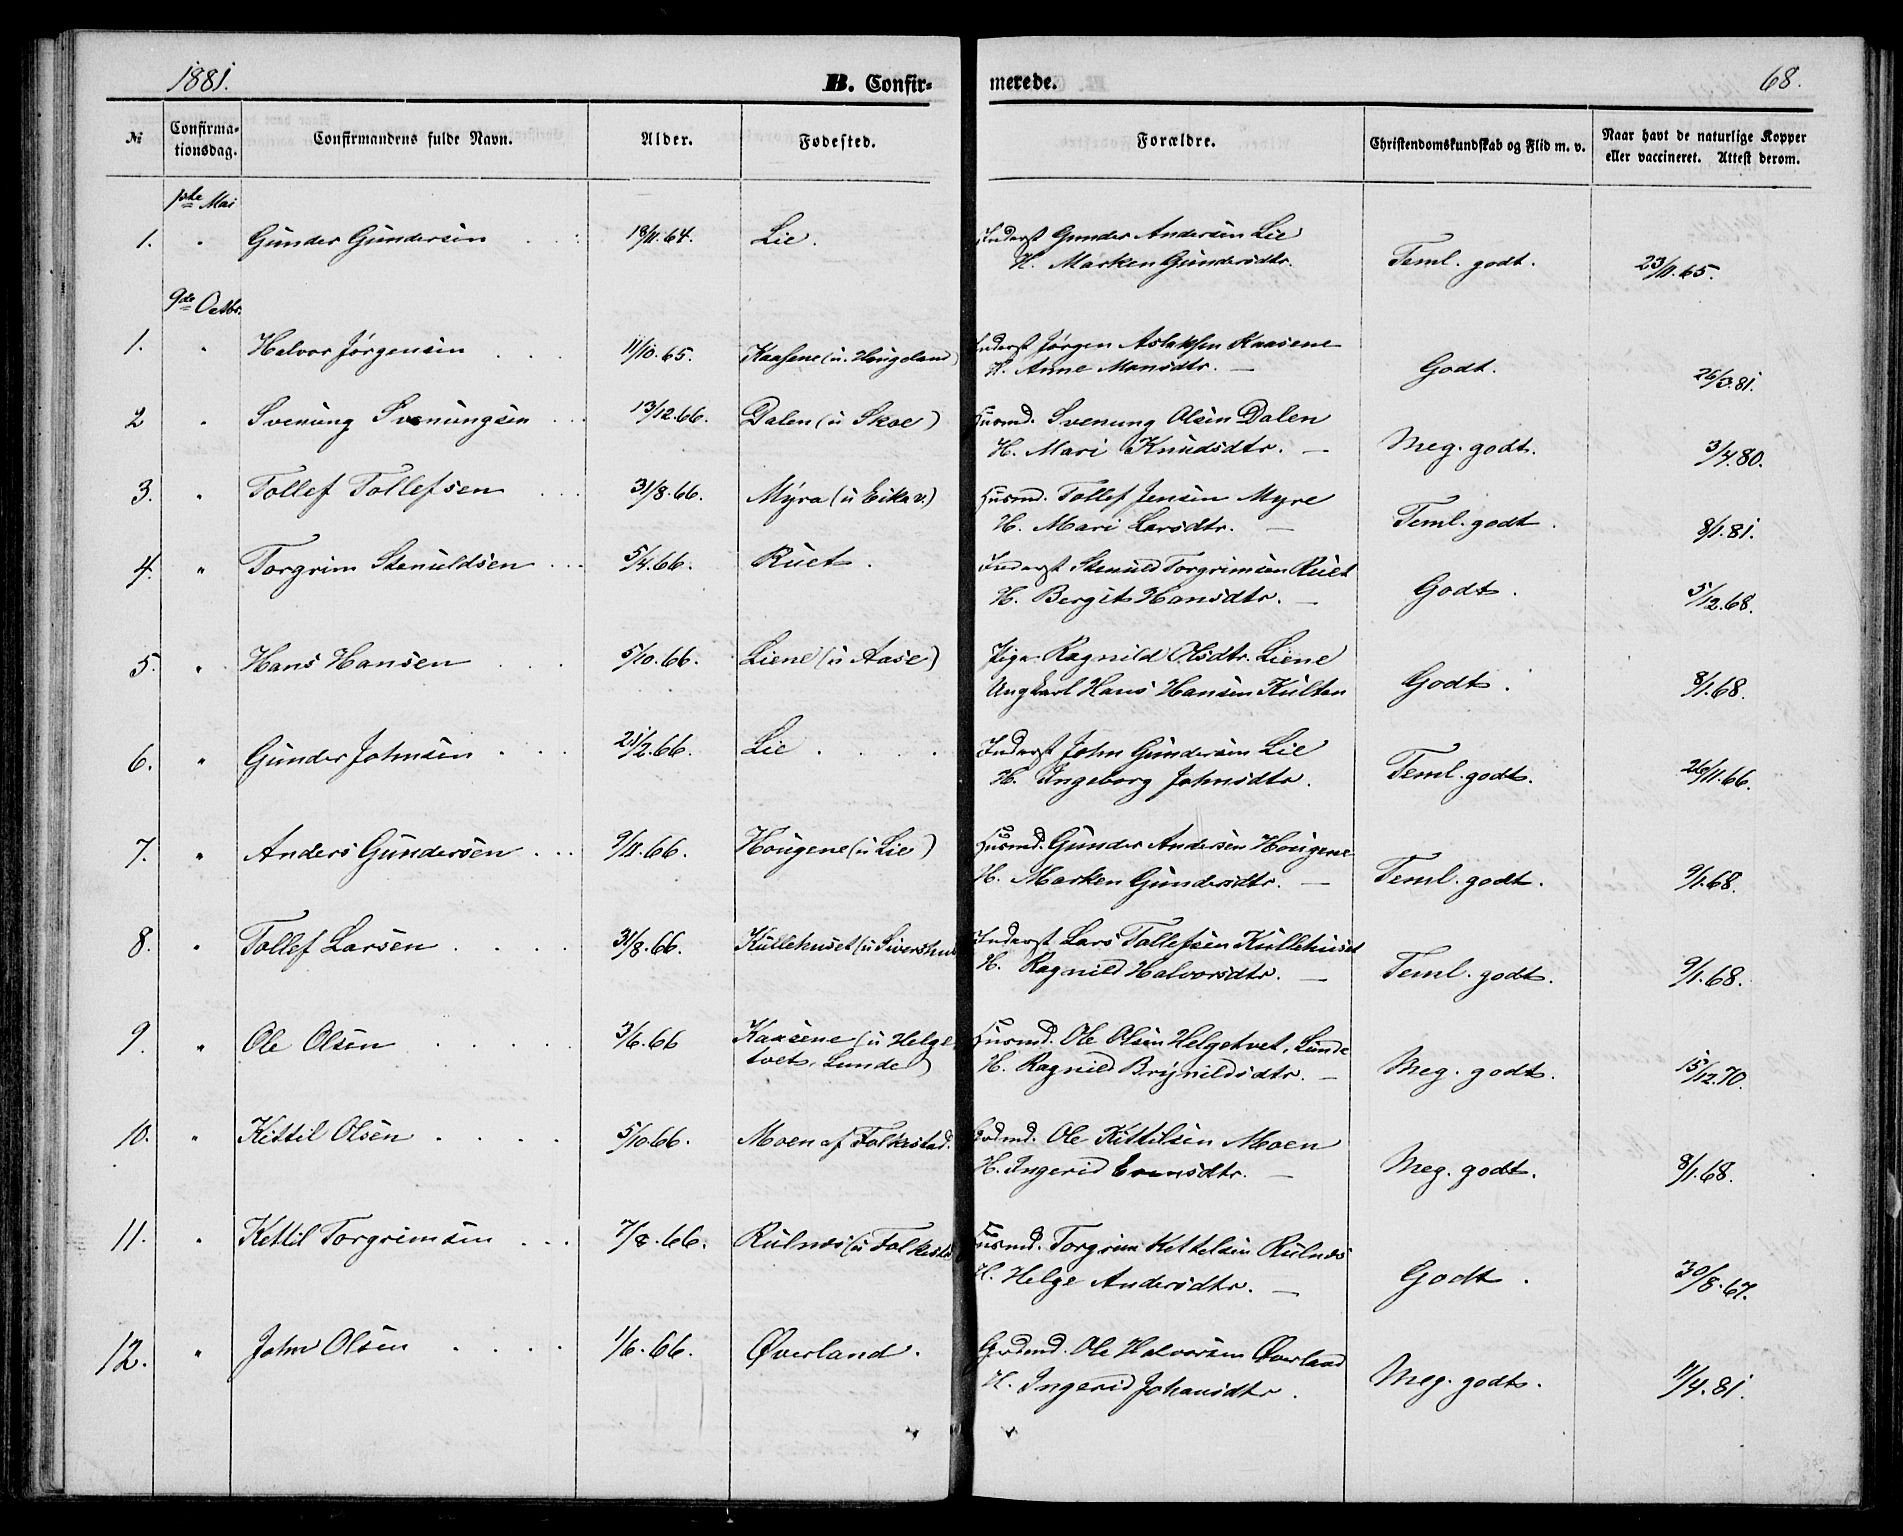 1881.
B. Confir-
merede.
68.
№
Confirma-
tionsdag.
Confirmandens fulde Navn.
Alder.
Fødested.
Forældre.
Christendomskundskab og Flid m. v.
Naar havt de naturlige Kopper
eller vaccineret. Attest derom.
1ste Mai
1. " Gunder Gundersen 18/11.64. Lie. Inderst Gunder Andersen Lie
H. Marken Gundersdtr. Teml. godt. 23/11.65.
9de Octbr.
1. " Halvor Jørgensen 11/10.65. Kaasene (u. Hougeland) Inderst Jørgen Aslaksen Kaasene
H. Anne Monsdtr. — Godt. 26/3.81.
2 " Svenung Svenungsen 13/12.66. Dalen (u Skoe) Husmd. Svenung Olsen Dalen
H. Mari Knudsdtr. — Meg. godt. 3/4.80.
3. " Tollef Tollefsen 31/8.66. Myra (u Eikav.) Husmd. Tollef Jensen Myre
H. Mari Larsdtr. — Teml. godt. 8/1.81.
4. " Torgrim Stenuldsen 5/4.66. Ruet. Inderst Stenuld Torgrimsen Ruet
H. Bergit Hansdtr. — Godt. 5/12.68.
5. " Hans Hansen 5/10.66. Liene (u Aase) Pige Ragnild Olsdtr. Liene
Ungkarl Hans Hansen Kulten Godt. 8/1.68.
6. " Gunder Johnsen 21/2.66. Lie Inderst John Gundersen Lie
H. Ingeborg Johnsdtr. Teml. godt. 26/11.66.
7. " Anders Gundersen 9/11.66. Hougene (u Lie) Husmd. Gunder Andersen Hougene
H. Marken Gundersdtr. — Teml. godt. 9/1.68.
8. " Tollef Larsen 31/8.66. Kullehuset (u Sivershus Inderst Lars Tollefsen Kullehuset
H. Ragnild Halvorsdtr. — Teml. godt. 9/1.68.
9. " Ole Olsen 3/6.66 Kaasene (u Helge Husmd. Ole Olsen Helgetvet, Lunde
tvet, Lunde) H. Ragnild Brynildsdtr. — Meg. godt. 15/12.70.
10. " Kittil Olsen 5/10.66. Moen af Folkestad. Grdmd. Ole Kittilsen Moen
H. Ingerid Evensdtr. — Meg. godt. 8/1.68.
11. " Kettil Torgrimsen 7/8.66. Rulnæs (u Folkestad Husmd. Torgrim Kettelsen Rulnæs
H. Helge Andersdtr. — Godt. 30/8.67.
12. " John Olsen 1/6.66. Øverland. Grdmd. Ole Halvorsen Øverland
H. Ingerid Johansdtr. Meg. godt. 11/4.81.